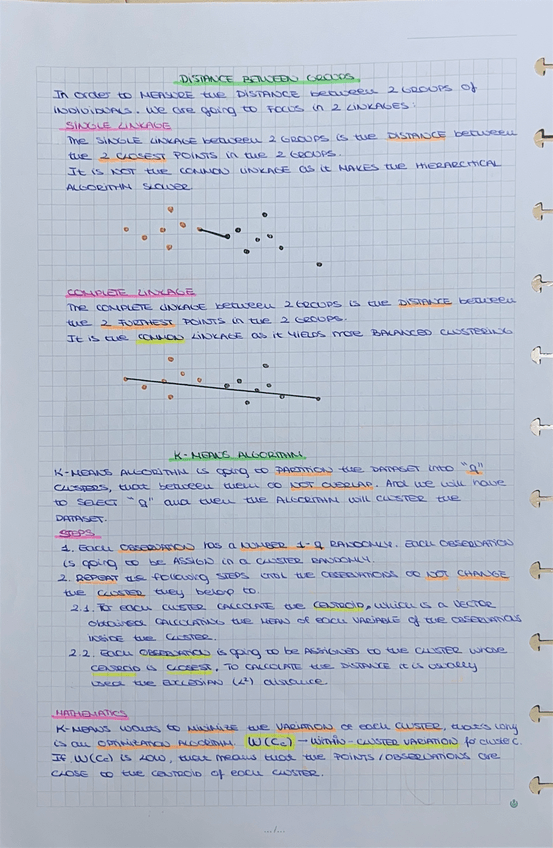 DISTANCE BETWEEN GROUPS
In order to MEASURE the DISTANCE between 2 GROUPS of
INDIVIDUALS. We are going to FOCUS in 2 LINKAGES:
SINGLE LINKAGE
The SINGLE LINKAGE between 2 GROUPS is the DISTANCE between
the 2 CLOSEST POINTS in the 2 GROUPS.
It is NOT the COMMON LINKAGE as it MAKES the HIERARCHICAL
ALGORITHM SLOWER.
COMPLETE LINKAGE
The COMPLETE LINKAGE between 2 GROUPS is the DISTANCE between
the 2 FURTHEST POINTS in the 2 GROUPS.
It is the COMMON LINKAGE as it YIELDS MORE BALANCED CLUSTERING
K-MEANS ALGORITHM
K-MEANS ALGORITHM is going to PARTITION the DATASET into "q"
CLUSTERS, that between them do NOT OVERLAP. And we will have
to SELECT "q" and then the ALGORITHM will CLUSTER the
DATASET.
STEPS
1. Each OBSERVATION has a NUMBER 1-q RANDOMLY. Each OBSERVATION
is going to be ASSIGN in a CLUSTER RANDOMLY.
2. REPEAT the following STEPS until the OBSERVATIONS do NOT CHANGE
the CLUSTER they belong to.
2.1. For each CLUSTER CALCULATE the CENTROID, which is a VECTOR
obtained CALCULATING the MEAN of each VARIABLE of the OBSERVATIONS
INSIDE the CLUSTER.
2.2. Each OBSERVATION is going to be ASSIGNED to the CLUSTER whose
CENTROID is CLOSEST, TO CALCULATE the DISTANCE it is usually
used the EUCLEDIAN (L²) distance.
MATHEMATICS
K-MEANS wants to MINIMIZE the VARIATION of each CLUSTER, that's why
is an OPTIMIZATION ALGORITHM. W(Cc) - WITHIN-CLUSTER VARIATION for cluster C.
If W(Cc) is LOW, that means that the POINTS / OBSERVATIONS are
CLOSE to the CENTROID of each CLUSTER.
.../...